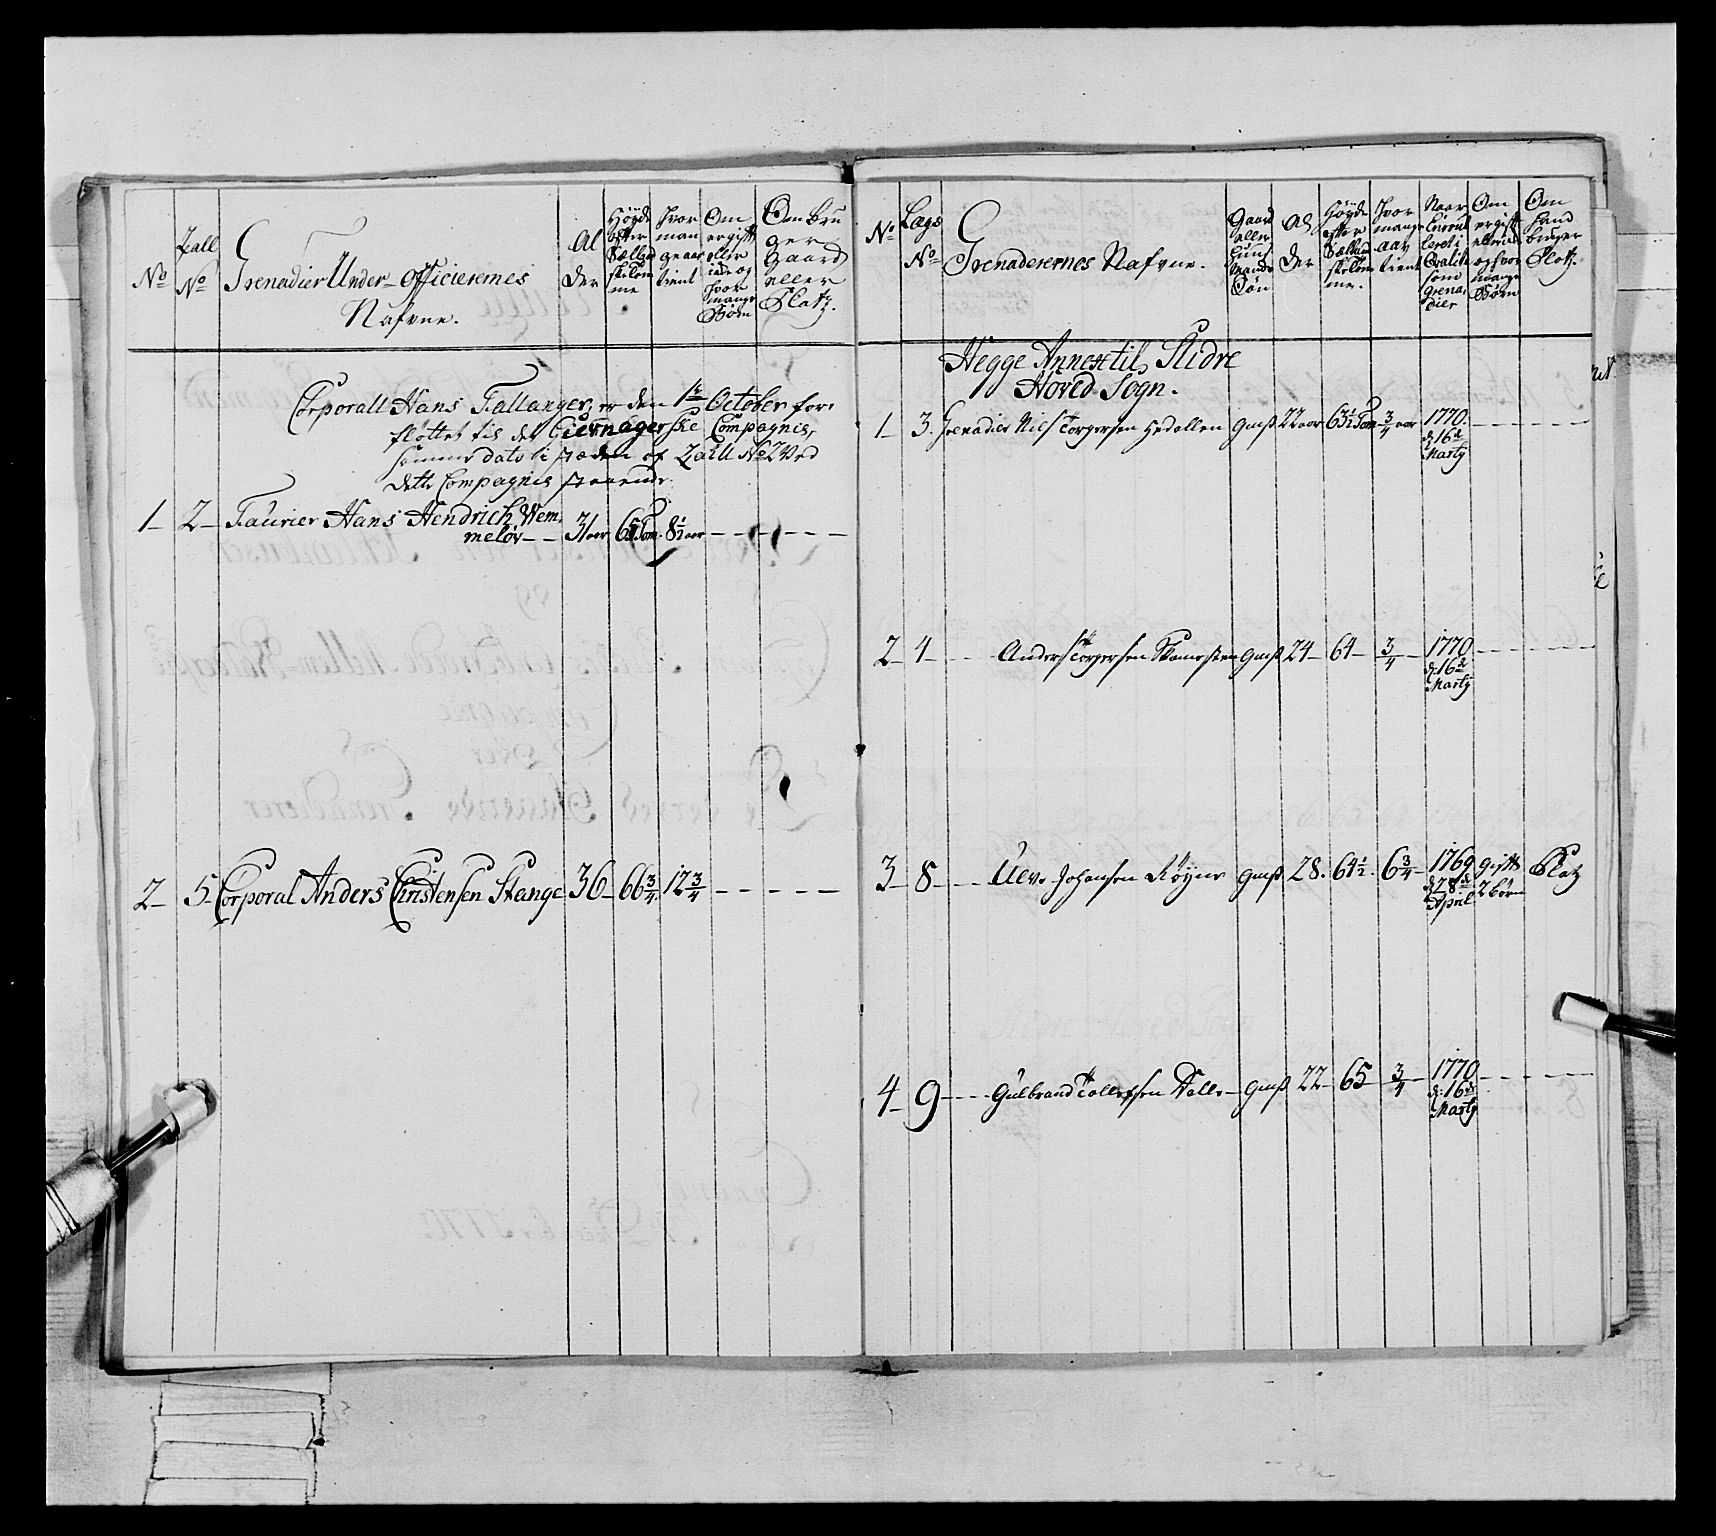 No
Zall
No
Grenadier Under-Officierernes
Nafvne.
Al
der
Höyde
efter
Sællan
skelom
me
hvor
man
ge aar
tient
Om
ergift
eller
ide og
hvor
mange
Børn
Om bru
ger
Gaard
eller
Platz.
Corporall Hans Fallanger, er den 1te October for-
fløttet til det Giernagerske Compagnie,
samme dato i stæden af Zall No 2 Ved
dette Compagnie staaende.
1 2 Faurier Hans Hendrich Wem-
meløv 31 aar 65 Tom. 8½ aar
2 5 Corporal Anders Christensen Stange 36 66¾ 12¾
No
Lægs
No
Grenaderernes Nafvne.
Gaard
eller
Huus
Mands
Søn
Al
der
Höyde
efter
Sælland
skelom
me.
hvor
mange
aar
tient
Naar
Enroul
leret i
Qvalite
som
Grena-
dier
Om
ergift
eller
og hvor
mange
Børn
Om
hand
bruger
Platz.
Hegge Annex til Slidre
Hoved-Sogn.
1 3. Grenadier Nils Torgersen Hedallen gmß 22 aar 63½ Tom ¾ aar 1770.
d. 16de
Martÿ
2 4 Anders Torgersen gmß 24 64 ¾ 1770
d. 16de
Martÿ
3 8 Ulve Johansen Röyne gmß 28. 64½ 6¾ 1769 gift Platz
d. 28de 2 børn
April
4 9 Gulbrand Tollefsen Walle gmß 22 65 ¾ 1770
d. 16de
Martÿ